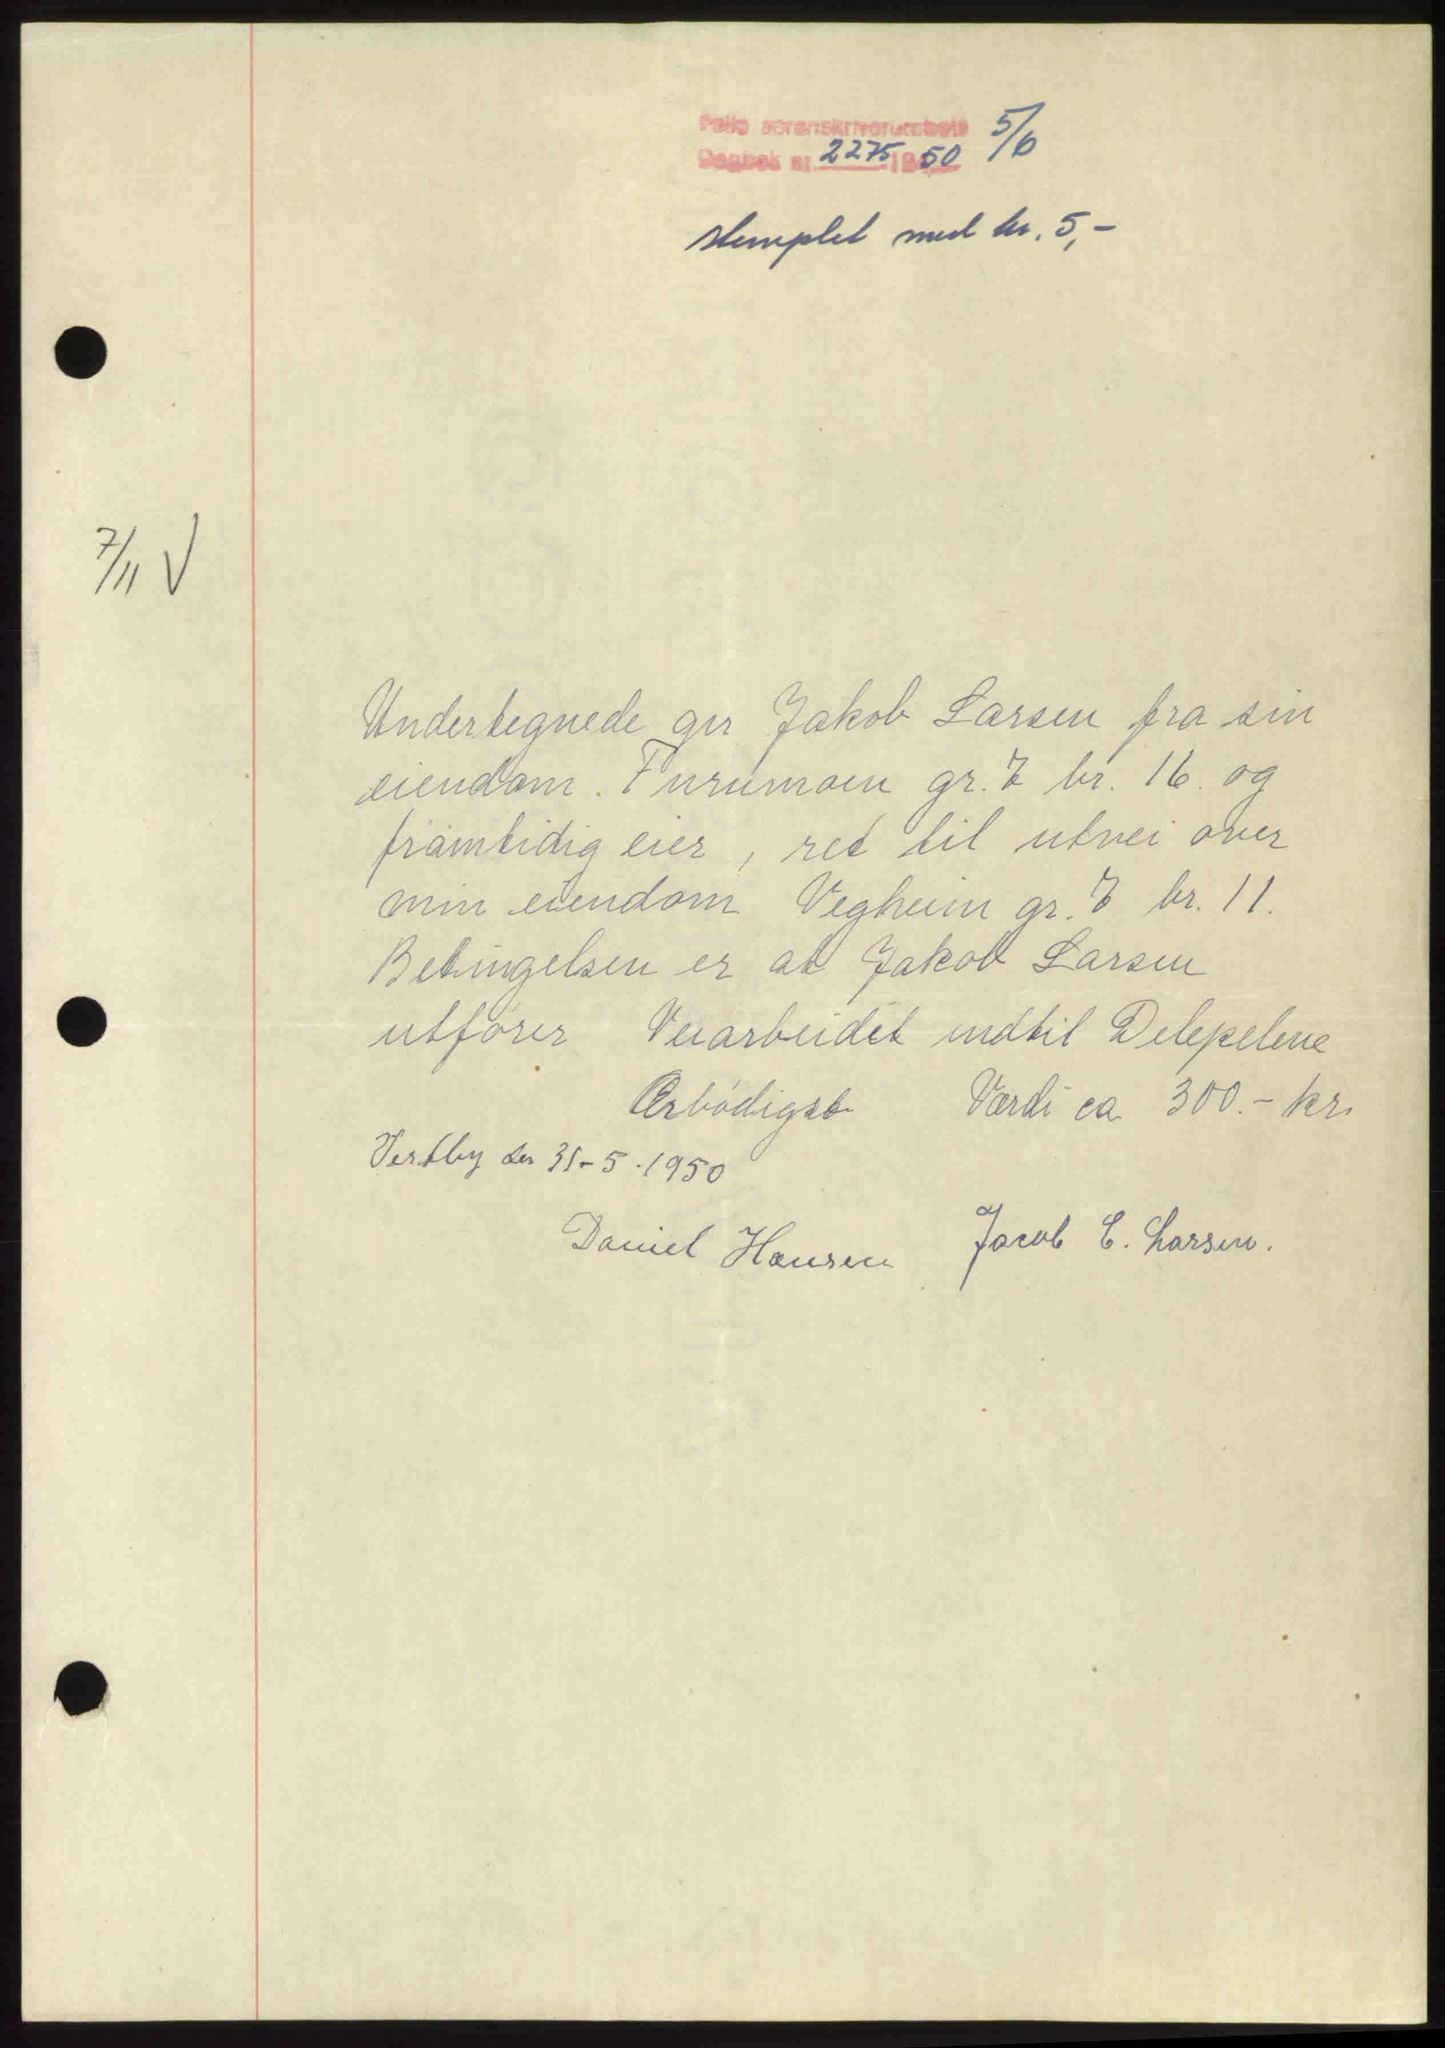 Follo sorenskriverembete 5/6
Dagbok nr. 2275 1950
stemplet med kr. 5,-
7/11 V
Undertegnede gir Jakob Larsen fra sin
eiendom. Furumoen gr. 7 br. 16. og
framtidig eier, ret til utvei over
min eiendom Vegheim gr. 7 br. 11.
Betingelsen er at Jakob Larsen
utfører Veiarbeidet indtil Delepelene
Ærbødigst Værdi ca 300.- kr.
Vestby den 31-5-1950
Daniel Hansen Jacob E. Larsen.